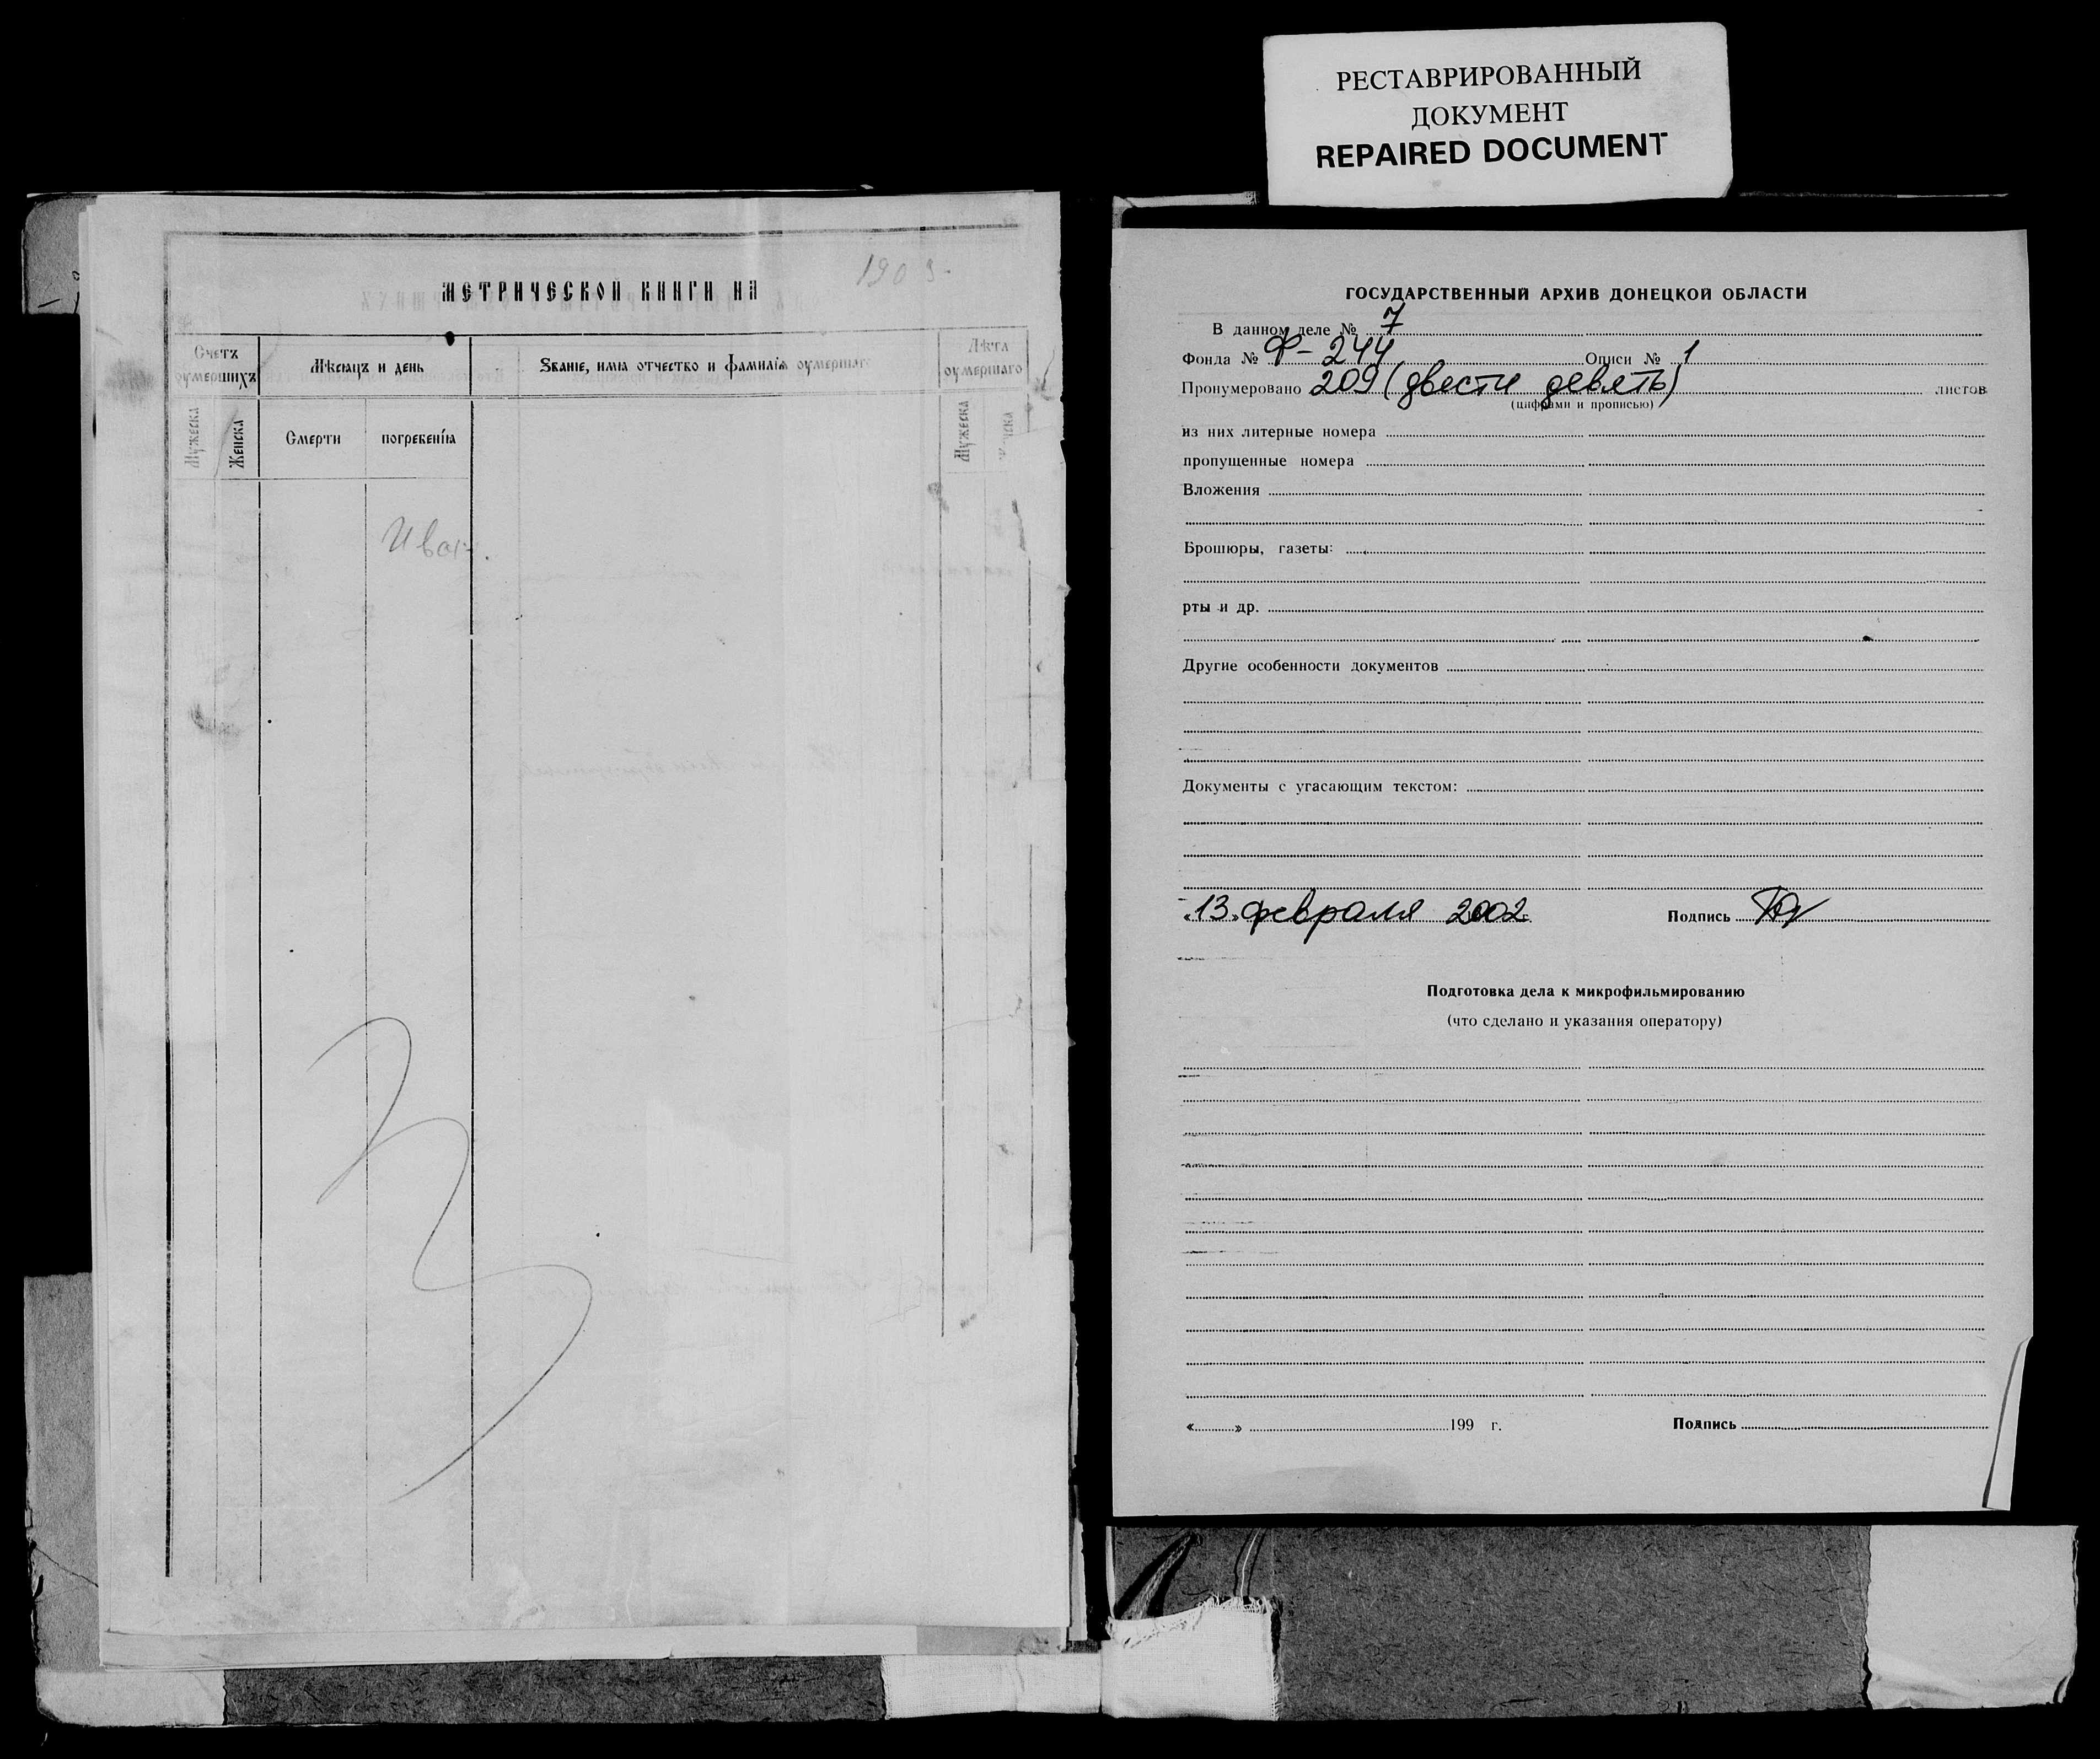 РЕСТАВРИРОВАННЫЙ
ДОКУМЕНТ
REPAIRED DOCUMENT
МЕТРИЧЕСКОЙ КНИГИ НА
Счетъ оумершихъ
Мѣсяцъ и день
Званіе, имя отчество и фамилія оумершаго
Лѣта оумершаго
Мужеска
Женска
Смерти
погребенія
Мужеска
ГОСУДАРСТВЕННЫЙ АРХИВ ДОНЕЦКОЙ ОБЛАСТИ
В данном деле № 7
Фонда № Ф-244 Описи № 1
Пронумеровано 209 (двести девять) листов
(цифрами и прописью)
из них литерные номера
пропущенные номера
Вложения
Брошюры, газеты:
рты и др.
Другие особенности документов
Документы с угасающим текстом:
«13» февраля 2002 г. Подпись
Подготовка дела к микрофильмированию
(что сделано и указания оператору)
« » 199 г. Подпись